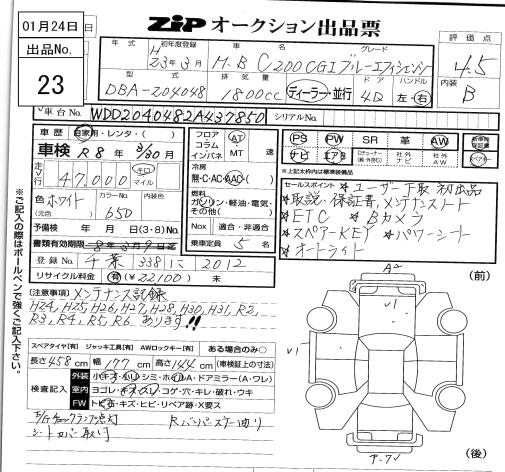 01月24日
出品No.
23
ZiP オークション出品票
年式 初年度登録 車名 グレード
H 23年3月 M.B C200CGIブルーエフィシェンシー
評価点
4.5
型式 排気量 ドア ハンドル
DBA-204048 1800cc ディーラー・並行 4D 左・右
内装
B
車台No. WDD2040482A437850 シリアルNo.
車歴 自家用・レンタ・( )
車検 R8年3/30月
走行 47,000 キロ マイル
色 ホワイト カラーNo. 650 内装色
(元色)
予備検 年 月 日(3・8)No.
書類有効期限 8年3月9日迄
登録No. 千葉 338 に 2012
リサイクル料金 有 (¥22100) 未
フロア コラム インパネ AT MT 速
冷房 無・C・AC・AAC
燃料 ガソリン・軽油・電気・その他( )
Nox 適合・非適合
乗車定員 5 名
PS PW SR 革 AW
ナビ エアB
※上記太枠内は標準装備品
セールスポイント ★ユーザー下取 初出品
★取説・保証書,メンテナンスノート
★ETC ★Bカメラ
★スペアーKEY ★パワーシート
★オートライト
[注意事項] メンテナンス記録
H24,H25,H26,H27,H28,H30,H31,R2,
R3,R4,R5,R6 あります!!
スペアタイヤ[有・無] ジャッキ工具[有・無] AWロックキー[有・無] ある場合のみ○
長さ458cm 幅177cm 高さ144cm (車検証上の寸法)
検査記入
外装 小キズ・小凹・シミ・ホイルA・ドアミラー(A・ワレ)
室内 ヨゴレ・キズ・スレ・コゲ・穴・キレ・破れ・ウキ
FW トビ石・キズ・ヒビ・リペア跡・X要ス
E/Gチェックランプ点灯 Rバンパースケール有り
シートカバー取付
※ご記入の際はボールペンで強くご記入下さい。
(前)
A2
V1
V1
(後)